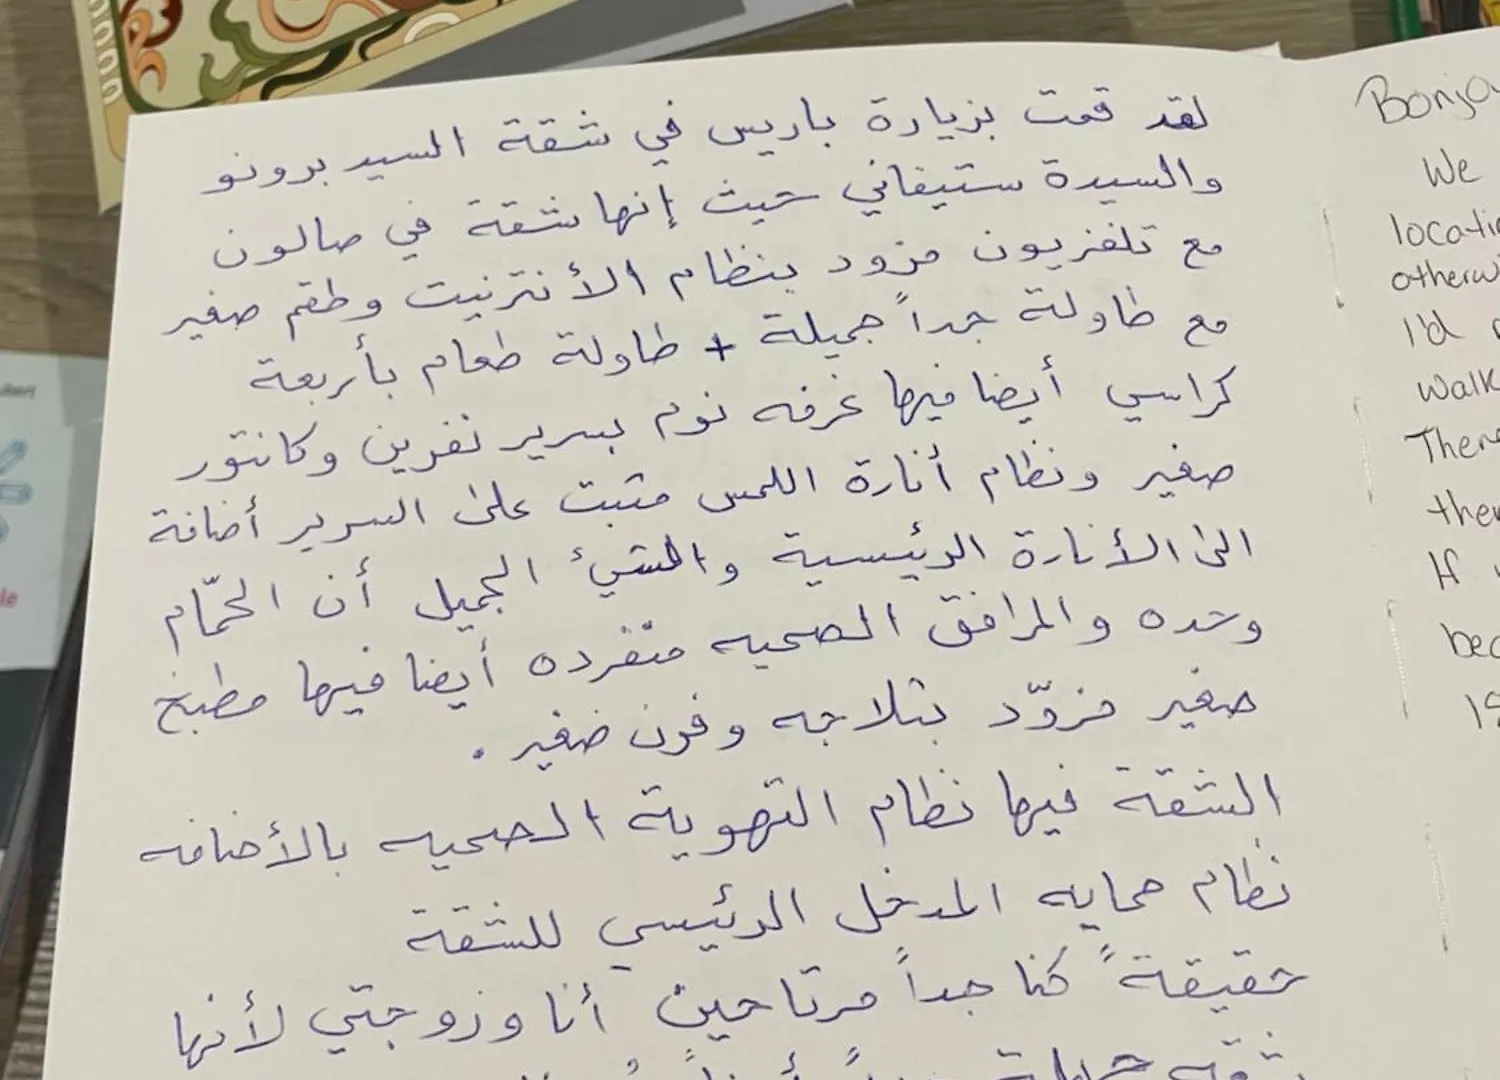 لقد قمت بزيارة باريس في شقة السيد برونو
والسيدة ستيفاني حيث إنها شقة في صالون
مع تلفزيون مزود بنظام الأنترنيت وطقم صغير
مع طاولة جداً جميلة + طاولة طعام بأربعة
كراسي أيضا فيها غرفه نوم بسرير نفرين وكانتور
صغير ونظام أنارة اللمس مثبت على السرير أضافة
الى الأنارة الرئيسية والشيء الجميل أن الحمّام
وحده والمرافق الصحيه منفرده أيضا فيها مطبخ
صغير مزوّد بثلاجه وفرن صغير .
الشقة فيها نظام التهوية الصحيه بالأضافه
نظام حمايه المدخل الرئيسي للشقة
حقيقةً كنا جداً مرتاحين أنا وزوجتي لأنها
Bonjo
We
locatio
otherwi
I'd
walk
There
ther
If
bec